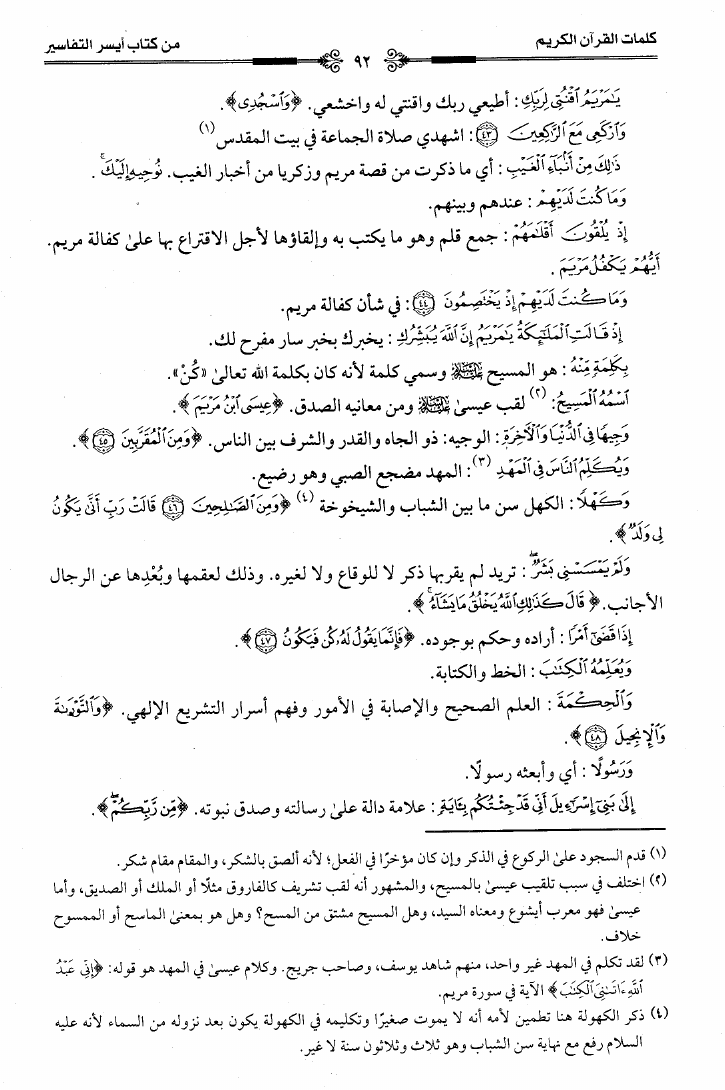 كلمات القرآن الكريم
٩٢
من كتاب أيسر التفاسير
يَٰمَرْيَمُ ٱقْنُتِى لِرَبِّكِ: أطيعي ربك واقنتي له واخشعي. ﴿وَٱسْجُدِى﴾.
وَٱرْكَعِى مَعَ ٱلرَّٰكِعِينَ ﴿٤٣﴾: اشهدي صلاة الجماعة في بيت المقدس(١)
ذَٰلِكَ مِنْ أَنۢبَآءِ ٱلْغَيْبِ: أي ما ذكرت من قصة مريم وزكريا من أخبار الغيب. نُوحِيهِ إِلَيْكَ ۚ.
وَمَا كُنتَ لَدَيْهِمْ: عندهم وبينهم.
إِذْ يُلْقُونَ أَقْلَٰمَهُمْ: جمع قلم وهو ما يكتب به وإلقاؤها لأجل الاقتراع بها علىٰ كفالة مريم.
أَيُّهُمْ يَكْفُلُ مَرْيَمَ.
وَمَا كُنتَ لَدَيْهِمْ إِذْ يَخْتَصِمُونَ ﴿٤٤﴾: في شأن كفالة مريم.
إِذْ قَالَتِ ٱلْمَلَٰٓئِكَةُ يَٰمَرْيَمُ إِنَّ ٱللَّهَ يُبَشِّرُكِ: يخبرك بخبر سار مفرح لك.
بِكَلِمَةٍ مِّنْهُ: هو المسيح عليه السلام وسمي كلمة لأنه كان بكلمة الله تعالىٰ «كُنْ».
ٱسْمُهُ ٱلْمَسِيحُ:(٢) لقب عيسىٰ عليه السلام ومن معانيه الصدق. ﴿عِيسَى ٱبْنُ مَرْيَمَ﴾.
وَجِيهًا فِى ٱلدُّنْيَا وَٱلْءَاخِرَةِ: الوجيه: ذو الجاه والقدر والشرف بين الناس. ﴿وَمِنَ ٱلْمُقَرَّبِينَ ﴿٤٥﴾﴾.
وَيُكَلِّمُ ٱلنَّاسَ فِى ٱلْمَهْدِ(٣): المهد مضجع الصبي وهو رضيع.
وَكَهْلًا: الكهل سن ما بين الشباب والشيخوخة(٤) ﴿وَمِنَ ٱلصَّٰلِحِينَ ﴿٤٦﴾ قَالَتْ رَبِّ أَنَّىٰ يَكُونُ
لِى وَلَدٌ﴾.
وَلَمْ يَمْسَسْنِى بَشَرٌ ۖ: تريد لم يقربها ذكر لا للوقاع ولا لغيره. وذلك لعقمها وبُعْدِها عن الرجال
الأجانب. ﴿قَالَ كَذَٰلِكِ ٱللَّهُ يَخْلُقُ مَا يَشَآءُ ۚ﴾.
إِذَا قَضَىٰٓ أَمْرًا: أراده وحكم بوجوده. ﴿فَإِنَّمَا يَقُولُ لَهُۥ كُن فَيَكُونُ ﴿٤٧﴾﴾.
وَيُعَلِّمُهُ ٱلْكِتَٰبَ: الخط والكتابة.
وَٱلْحِكْمَةَ: العلم الصحيح والإصابة في الأمور وفهم أسرار التشريع الإلهي. ﴿وَٱلتَّوْرَىٰةَ
وَٱلْإِنجِيلَ ﴿٤٨﴾﴾.
وَرَسُولًا: أي وأبعثه رسولًا.
إِلَىٰ بَنِىٓ إِسْرَٰٓءِيلَ أَنِّى قَدْ جِئْتُكُم بِـَٔايَةٍ: علامة دالة علىٰ رسالته وصدق نبوته. ﴿مِّن رَّبِّكُمْ ۖ﴾.
(١) قدم السجود علىٰ الركوع في الذكر وإن كان مؤخرًا في الفعل؛ لأنه ألصق بالشكر، والمقام مقام شكر.
(٢) اختلف في سبب تلقيب عيسىٰ بالمسيح، والمشهور أنه لقب تشريف كالفاروق مثلًا أو الملك أو الصديق، وأما
عيسىٰ فهو معرب أيشوع ومعناه السيد، وهل المسيح مشتق من المسح؟ وهل هو بمعنىٰ الماسح أو الممسوح
خلاف.
(٣) لقد تكلم في المهد غير واحد، منهم شاهد يوسف، وصاحب جريج. وكلام عيسىٰ في المهد هو قوله: ﴿إِنِّى عَبْدُ
ٱللَّهِ ءَاتَىٰنِىَ ٱلْكِتَٰبَ﴾ الآية في سورة مريم.
(٤) ذكر الكهولة هنا تطمين لأمه أنه لا يموت صغيرًا وتكليمه في الكهولة يكون بعد نزوله من السماء لأنه عليه
السلام رفع مع نهاية سن الشباب وهو ثلاث وثلاثون سنة لا غير.